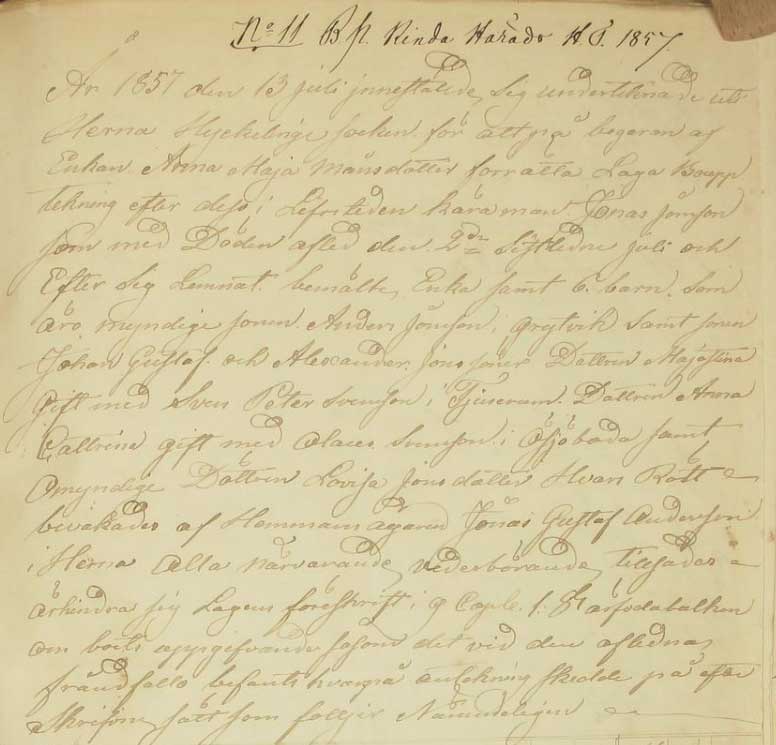 No 11 Kinda Härads H.T. 1857
År 1857 den 13 juli innestälde sig undertecknade uti
Herna Hyckelinge socken för att på begeran af
Enkan Anna Maja Månsdotter förrätta Laga Boupp
tekning efter dess i Lifvstiden kära man Jonas Jonsson
som med Döden afled den 2dn sistledne juli och
Efter sig Lemnat bemälte Enka samt 6 barn som
äro myndige sonen Anders Jonsson i grytvik samt sonen
Johan Gustaf och Alexander Jons söner Dottren Majastina
gift med Sven Peter Svensson i Tjuserum Dottren Anna
Cattrina gift med Claees Svensson i samt
omyndige Dottren Lovisa Jonsdotter Hvars Rätt
bevakades af Hemmans ägaren Jonas Gustaf Andersson
i Herna alla närvarande vederbörande tillsades
århindra sig Lagens föreskrift i 9 Capl. 1 § ärfdabalken
om boets uppgifvande såsom det vid den aflednas
frånfälle befants hvarpå antekning skedde på efter
Skrifne sätt som följer Nämndeligen